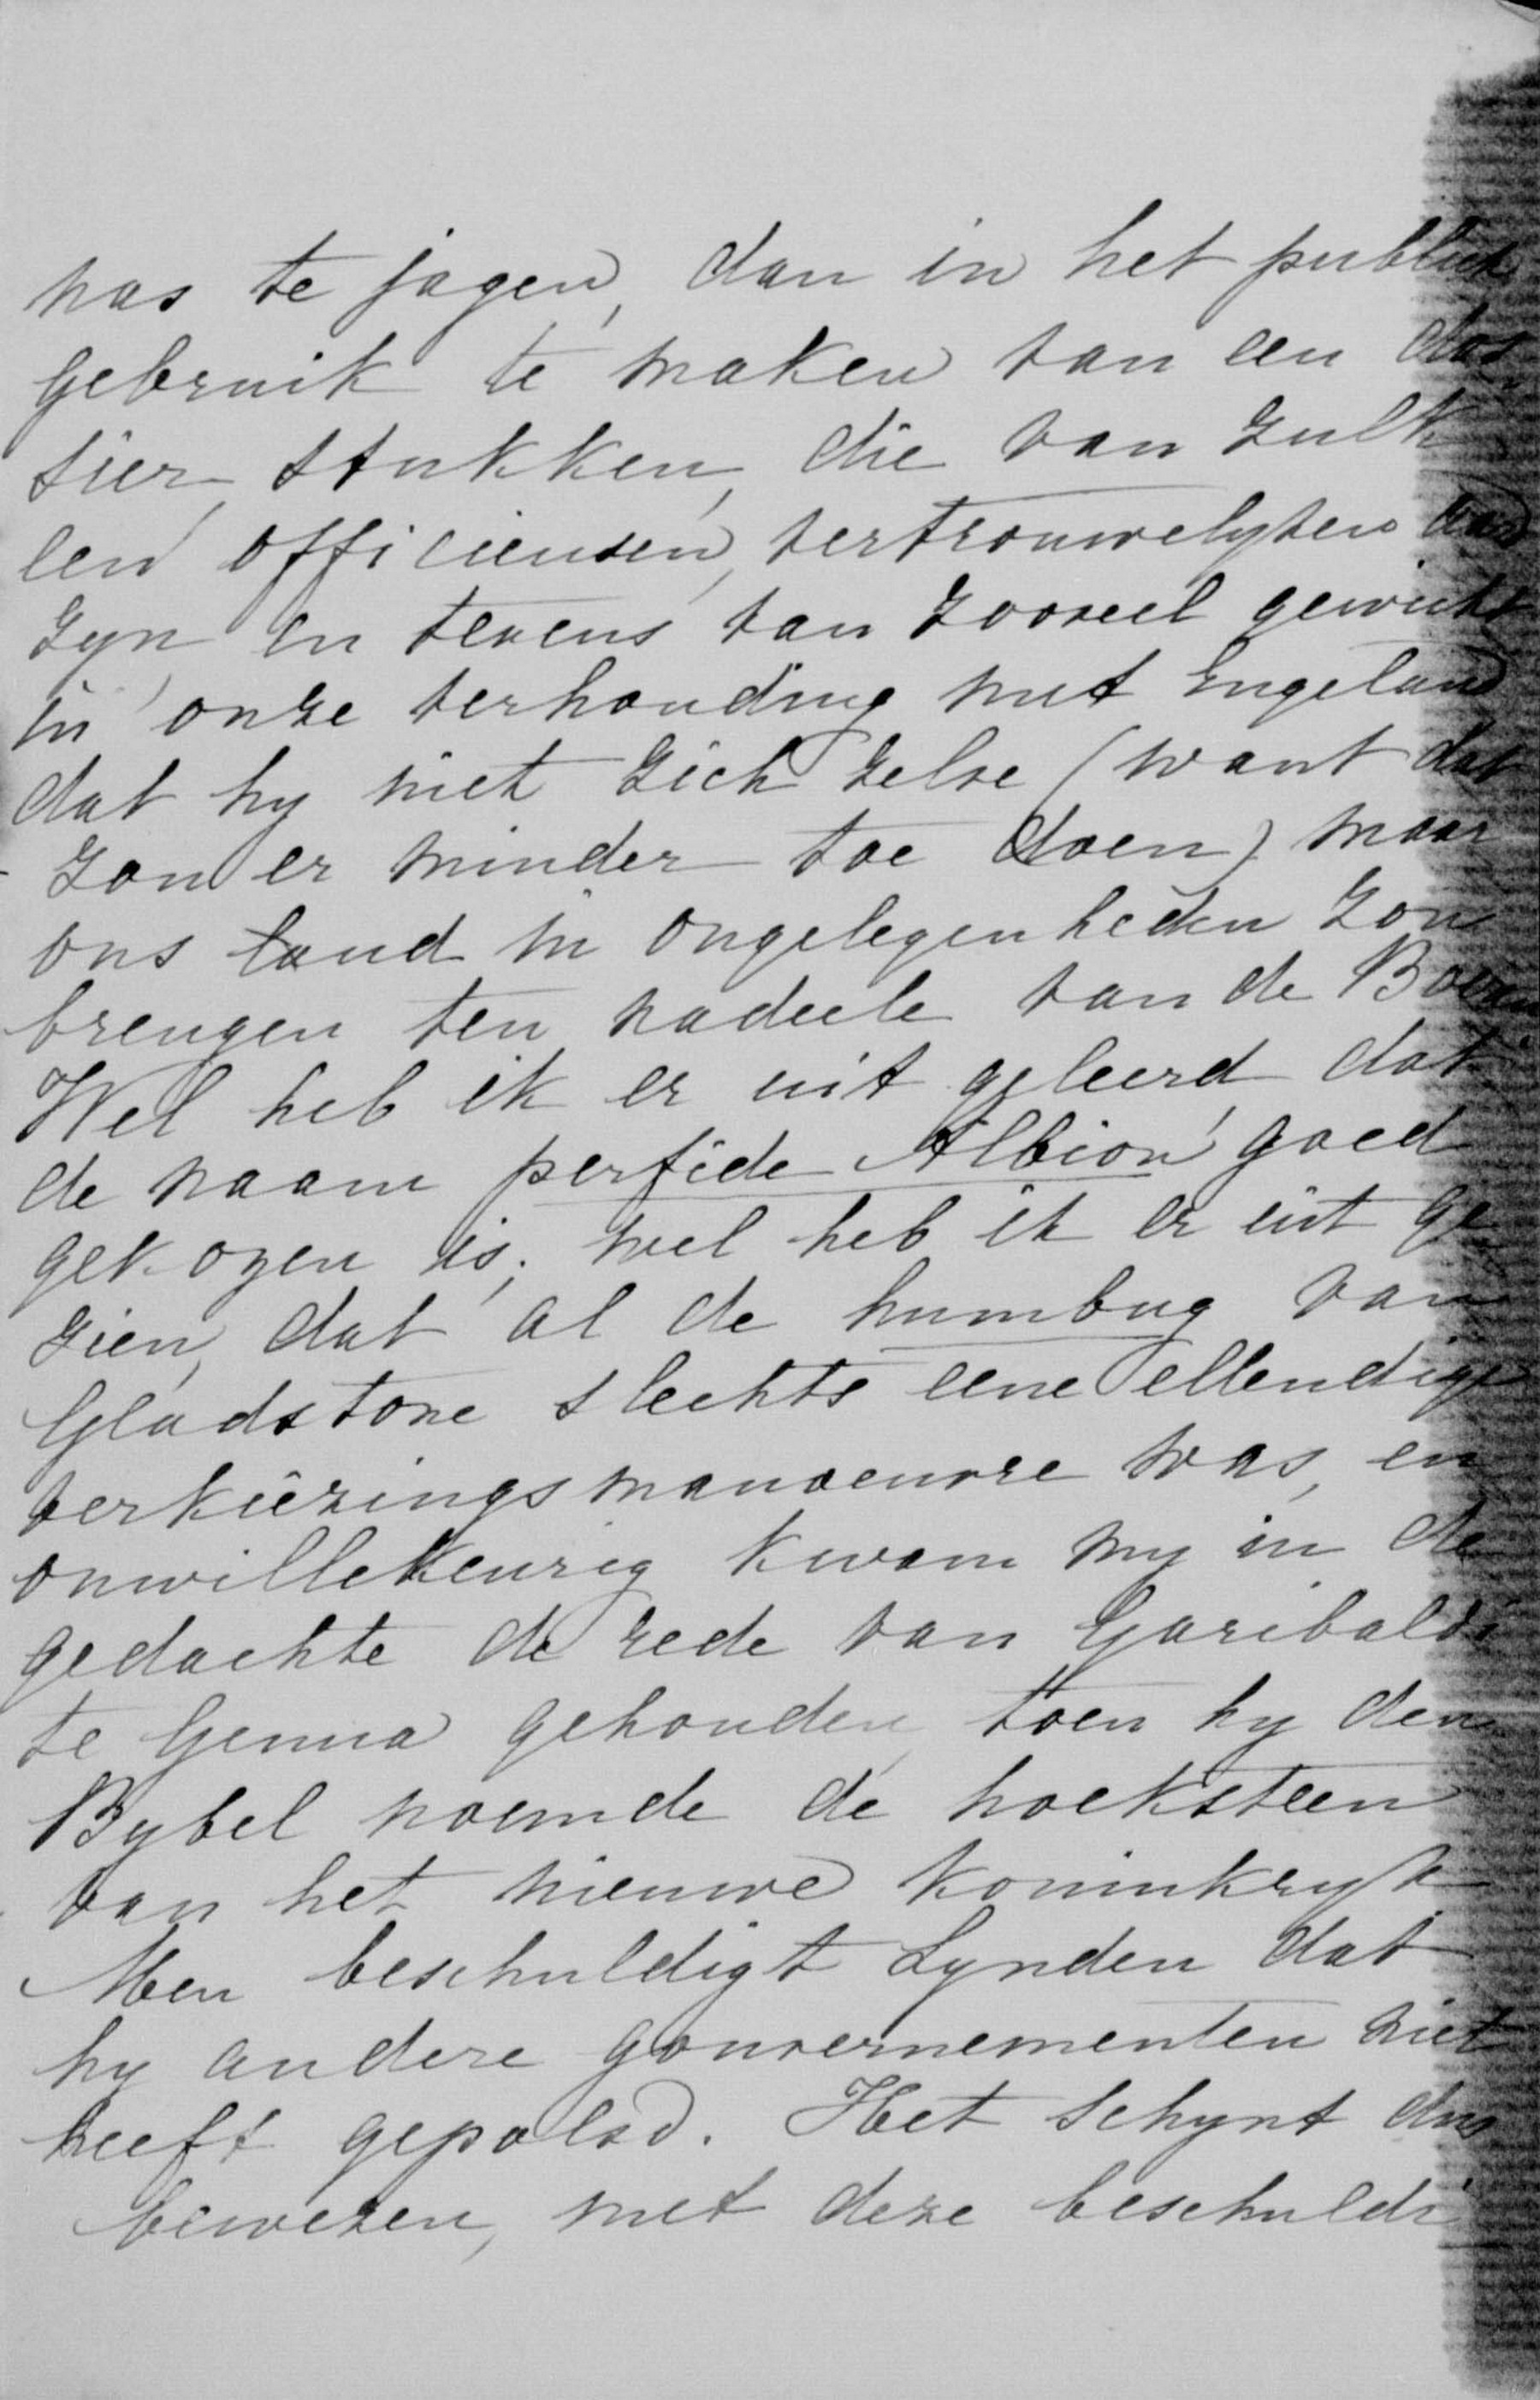 was te jagen, dan in het publiek
gebruik te maken van een dos
sier, stukken, die van zulk
len officieusen, vertrouwelyken aard
zyn en tevens van zooveel gewicht
in onze verhouding met Engeland
dat hy niet zich zelve (want dat
zou er minder toe doen) maar
ons land in ongelegenheden zou
brengen ten nadeele van de Boeren
Wel heb ik er uit geleerd dat
de naam perfide Albion goed
gekozen is; wel heb ik er uit ge
zien, dat al de humbug van
Gladstone slechts eene ellendige
verkiezingsmanoeuvre was, en
onwillekeurig kwam my in de
gedachte de rede van Garibaldi
te Genua gehouden, toen hy den
Bybel noemde de hoeksteen
van het nieuwe koninkryk
Men beschuldigt Lynden dat
hy andere gouvernementen niet
heeft gepolsd. Het schynt dus
bewezen, met deze beschuldi